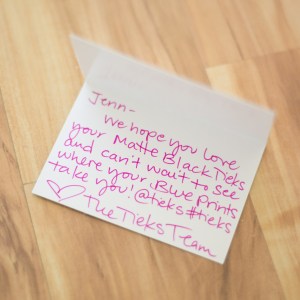 Jenn-
We hope you love
your Matte Black Tieks
and can't wait to see
where your Blue Prints
take you! @tieks #tieks
♡ The Tieks Team